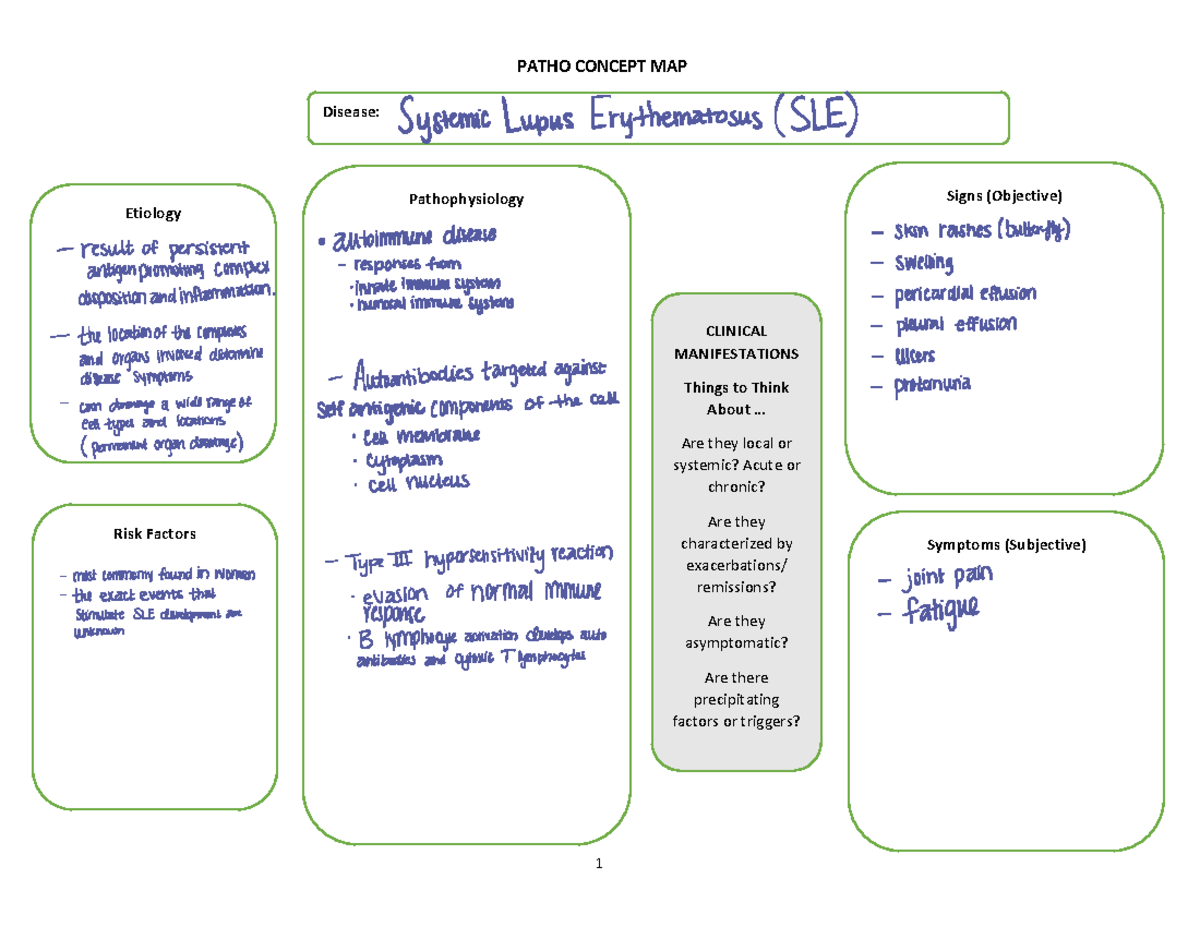 PATHO CONCEPT MAP
Disease: Systemic Lupus Erythematosus (SLE)
Etiology
– result of persistent
antigen promoting complex
disposition and inflammation.
– the location of the complexes
and organs involved determine
disease symptoms
– can damage a wide range of
cell types and locations
(permanent organ damage)
Risk Factors
– most commonly found in women
– the exact events that
stimulate SLE development are
unknown
Pathophysiology
• autoimmune disease
– responses from
· innate immune system
· humoral immune system
– Autoantibodies targeted against
self antigenic components of the cell
· cell membrane
· cytoplasm
· cell nucleus
– Type III hypersensitivity reaction
· evasion of normal immune
response
· B lymphocyte activation develops auto
antibodies and cytoxic T lymphocytes
CLINICAL
MANIFESTATIONS
Things to Think
About ...
Are they local or
systemic? Acute or
chronic?
Are they
characterized by
exacerbations/
remissions?
Are they
asymptomatic?
Are there
precipitating
factors or triggers?
Signs (Objective)
– skin rashes (butterfly)
– swelling
– pericardial effusion
– pleural effusion
– ulcers
– proteinuria
Symptoms (Subjective)
– joint pain
– fatigue
1